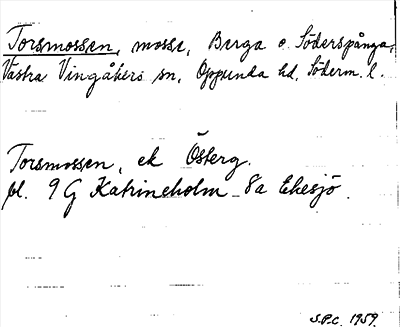 Torsmossen, mosse, Berga o. Söderspånga,
Västra Vingåkers sn, Oppunda hd, Söderm. l.
Torsmossen, ek Österg.
bl. 9 G Katrineholm 8a Ekesjö.
S.P.C. 1959.